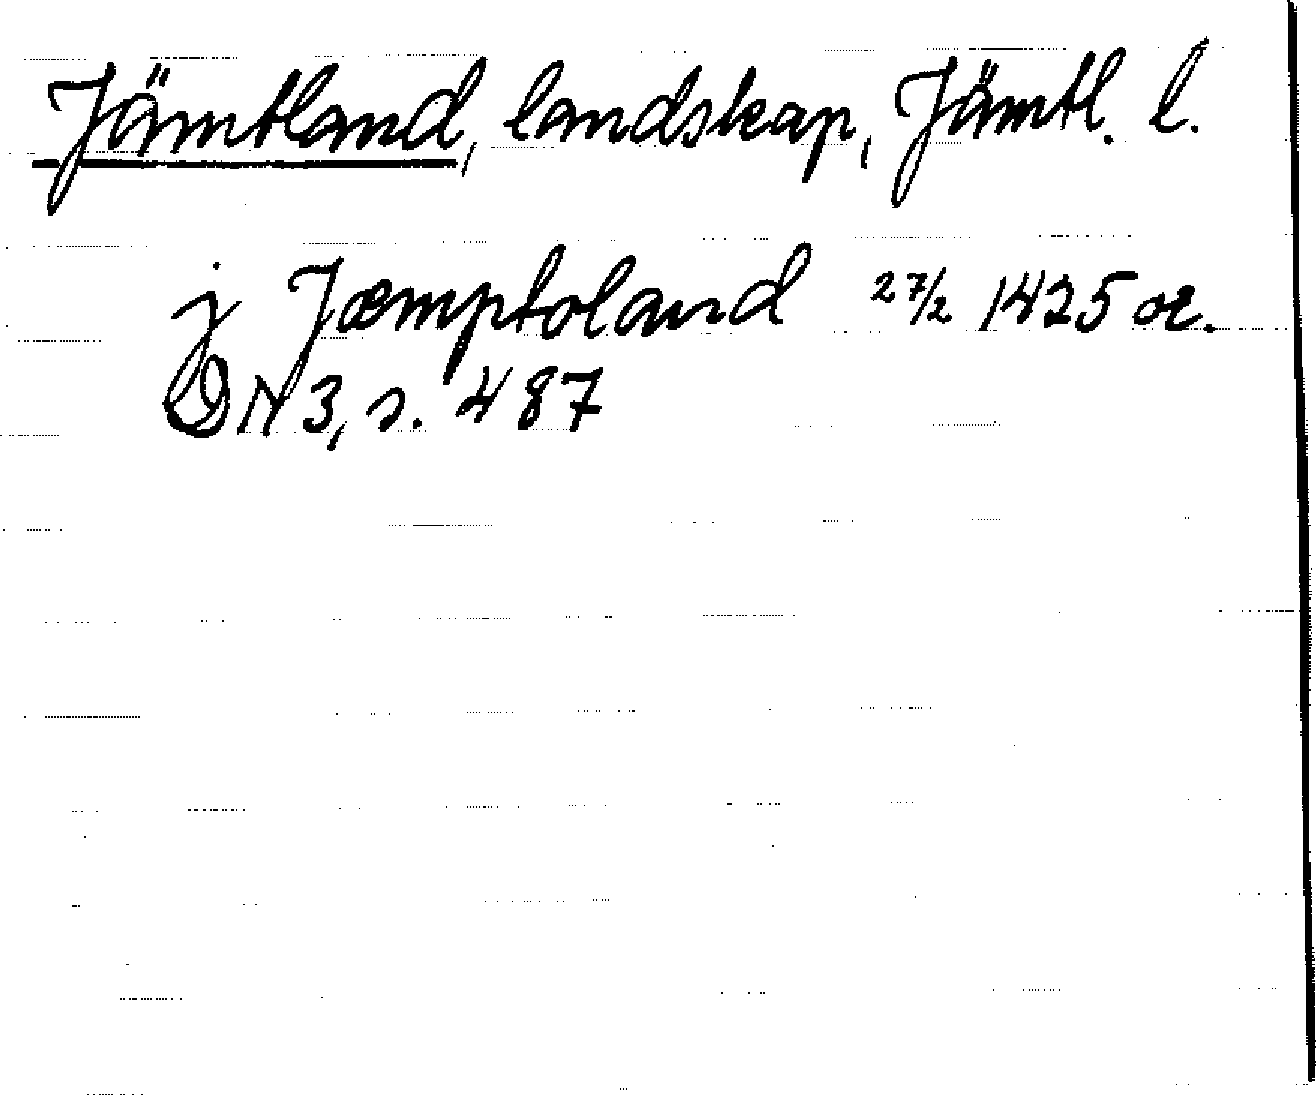 Jämtland, landskap, Jämtl. l.
j Jæmptoland 27/2 1425 or.
DN 3, s. 487